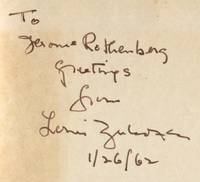 To
Jerome Rothenberg
Greetings
from
Louis Zukofsky
1/26/62